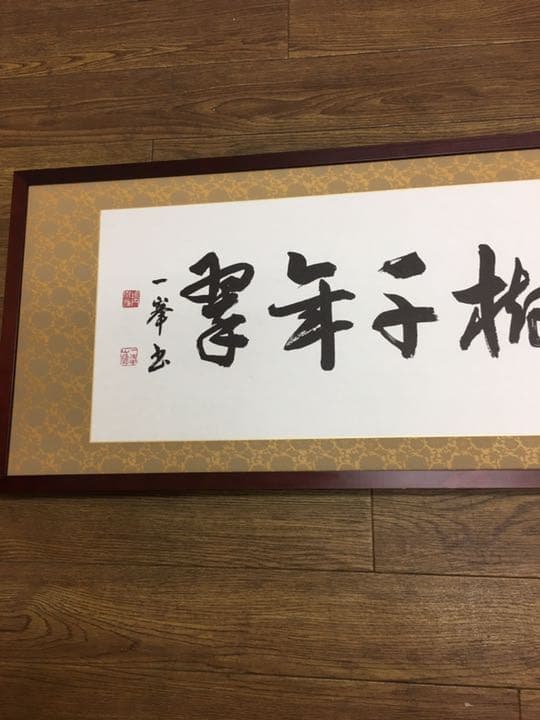 千年翠
一峯書